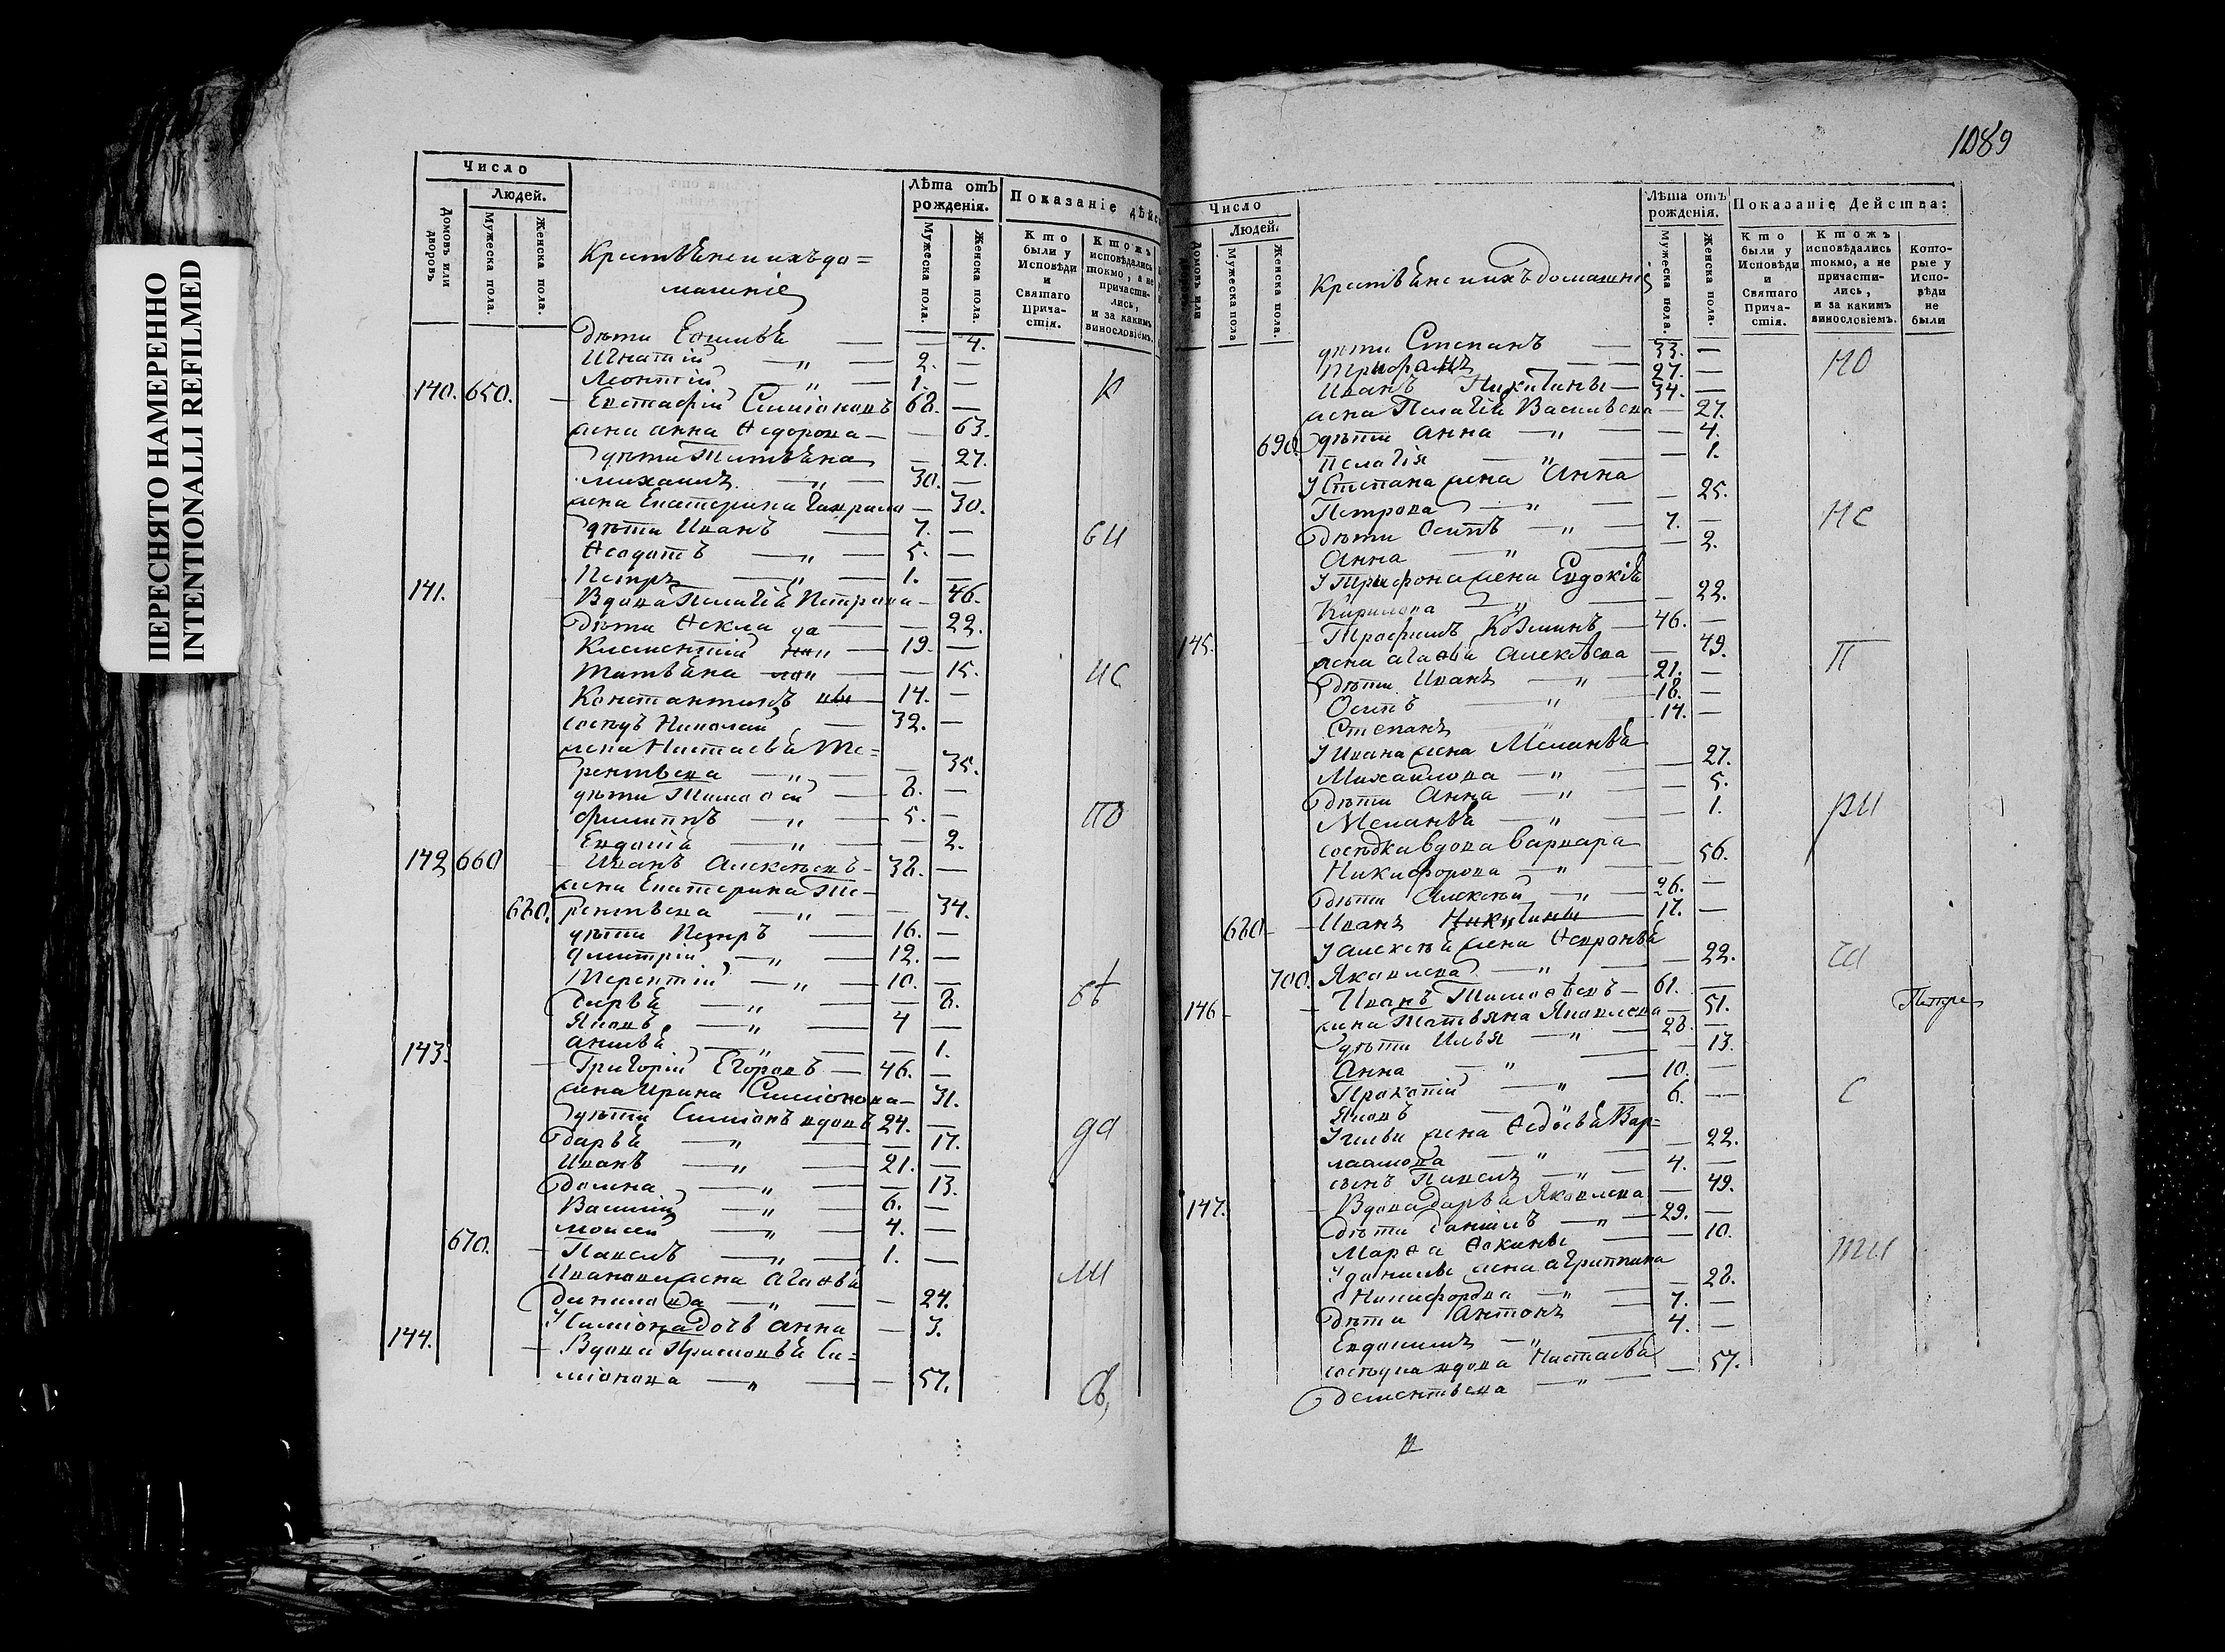 ПЕРЕСНЯТО НАМЕРЕННО
INTENTIONALLI REFILMED
Число
Людей.
Домовъ или дворовъ
Мужеска пола.
Женска пола.
Лѣта отъ рожденія.
Мужеска пола.
Женска пола.
Показаніе дѣйс
Кто были у Исповѣди и Святаго Прича-стія.
Ктожъ исповѣдались токмо, а не причасти-лись, и за какимъ винословіемъ.
Крестьяне и ихъ до=
машніе
дѣти — 4.
Игнатій — " — 2. —
Леонтій — " — 1. —
140. 650. Евстафій Симіоновъ 68. —
жена Анна Ѳедорова — 63.
дѣти Татьяна — 27.
Михаилъ — " — 30. —
жена Екатерина Гаврилова — 30.
дѣти Иванъ — 7. —
Ѳеодотъ — " — 5. —
Петръ — " — 1. —
141. Вдова Пелагія Петрова — 46.
дѣти Ѳекла — 22.
Климентій — 19. —
Татьяна — 15.
Константинъ — 14. —
сосѣдъ Николай — 32. —
жена Настасья Те=
рентьева — " — 35.
дѣти Тимоѳей — 8. —
Филиппъ — " — 5. —
Евдокія — " — 2.
142 660 Иванъ Алексѣевъ — 38. —
жена Екатерина Те=
680. рентьева — " — 34.
дѣти Петръ — 16. —
Дмитрій — " — 12. —
Терентій — " — 10. —
Дарья — " — 8.
Яковъ — " — 4 —
— " — 1.
143. Григорій Егоровъ — 46. —
жена Ирина Симіонова — 31.
дѣти Симіонъ вдовъ 24. —
Дарья — " — 17.
Иванъ — " — 21. —
Домна — " — 13.
Василій — " — 6. —
Моисей — " — 4. —
670. Павелъ — " — 1. —
Иванова жена Агафья
Данилова — " — 24.
У Симіона дочь Анна — 3.
144. Вдова Си=
міонова — " — 57.
1089
Число
Людей.
Домовъ или
Мужеска пола
Женска пола.
Лѣта отъ рожденія.
Мужеска пола.
Женска пола.
Показаніе Действа:
Кто были у Исповѣди и Святаго Прича-стія.
Ктожъ исповѣдались токмо, а не причасти-лись, и за какимъ винословіемъ.
Кото-рые у Испо-вѣди не были
Крестьяне и ихъ домашніе
дѣти Степанъ — 33. —
Трифонъ — 27. —
Иванъ Никитины — 34. —
жена Пелагія Васильева — 27.
690. дѣти Анна — " — 4.
Пелагія — " — 1.
У Степана жена Анна
Петрова — " — 25.
дѣти Осипъ — " — 7. —
Анна — " — 2.
У Трифона жена Евдокія
Кирилова — " — 22.
145. Трофимъ Козминъ — 46. —
жена Агафья Алексѣева — 49.
дѣти Иванъ — " — 21. —
Осипъ — " — 18. —
Степанъ — " — 14. —
У Ивана жена Меланья
Михайлова — " — 27.
дѣти Анна — " — 5.
Меланья — " — 1.
сосѣдка вдова Варвара
Никифорова — " — 56.
дѣти Алексѣй — " — 26. —
680. Иванъ Никитины — 17. —
У Алексѣя жена Ѳевронья
700. Яковлева — " — 22.
146 Иванъ Тимоѳеевъ — 61. —
жена Татьяна Яковлева — 51.
дѣти Илья — " — 28. —
Анна — " — 13.
Прокопій — " — 10. —
Яковъ — 6. —
У Ильи жена Ѳедосья Вар=
лаамова — " — 22.
сынъ Павелъ — " — 4. —
147. Вдова Дарья Яковлева — 49.
дѣти Данилъ — " — 29. —
Марѳа Ѳокины — 10.
У Данилы жена Агриппина
Никифорова — " — 28.
дѣти Антонъ — 7. —
Евдокимъ — " — 4. —
сосѣдка вдова Настасья
Дементьева — " — 57.